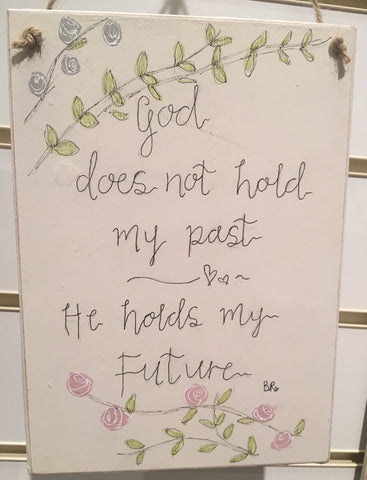 God
does not hold
my past
He holds my
Future
BR